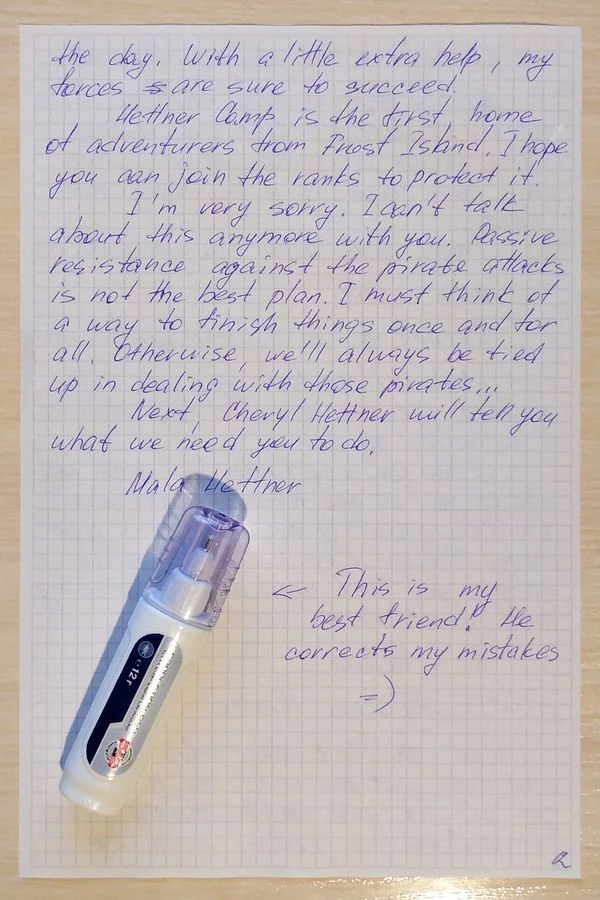 the day. With a little extra help, my
forces are sure to succeed.
Hettner Camp is the first home
of adventurers from Frost Island. I hope
you can join the ranks to protect it.
I'm very sorry. I can't talk
about this anymore with you. Passive
resistance against the pirate attacks
is not the best plan. I must think of
a way to finish things once and for
all. Otherwise, we'll always be tied
up in dealing with those pirates...
Next, Cheryl Hettner will tell you
what we need you to do.
Mala Hettner
← This is my
best friend! He
corrects my mistakes
=)
12 г
2